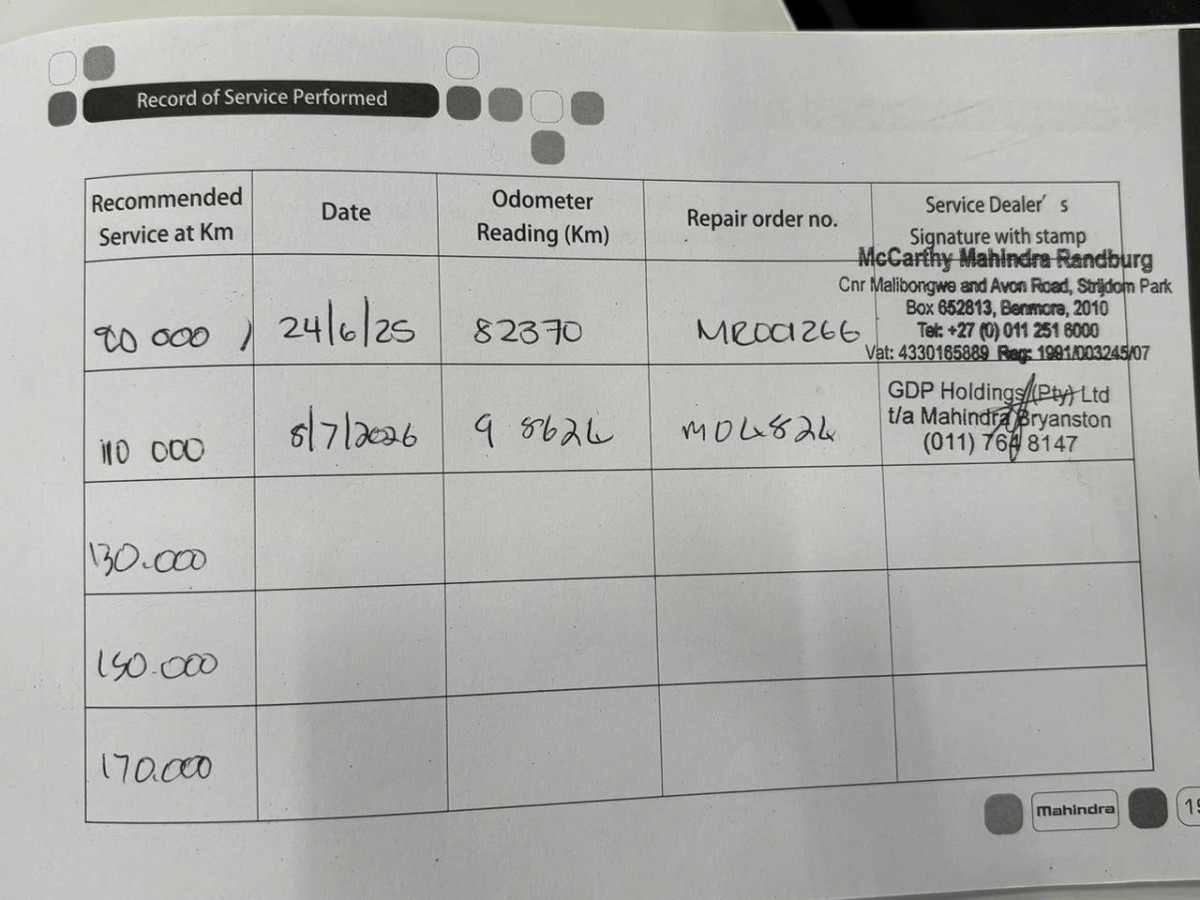 Record of Service Performed
Recommended Service at Km
Date
Odometer Reading (Km)
Repair order no.
Service Dealer's Signature with stamp
90 000
24/6/25
82370
McCarthy Mahindra Randburg
Cnr Malibongwe and Avon Road, Strijdom Park
Box 652813, Benmore, 2010
Tel: +27 (0) 011 251 6000
Vat: 4330165889 Reg: 1991/003245/07
110 000
8/7/2026
98624
M04824
GDP Holdings (Pty) Ltd
t/a Mahindra Bryanston
(011) 764 8147
130.000
150.000
170.000
Mahindra